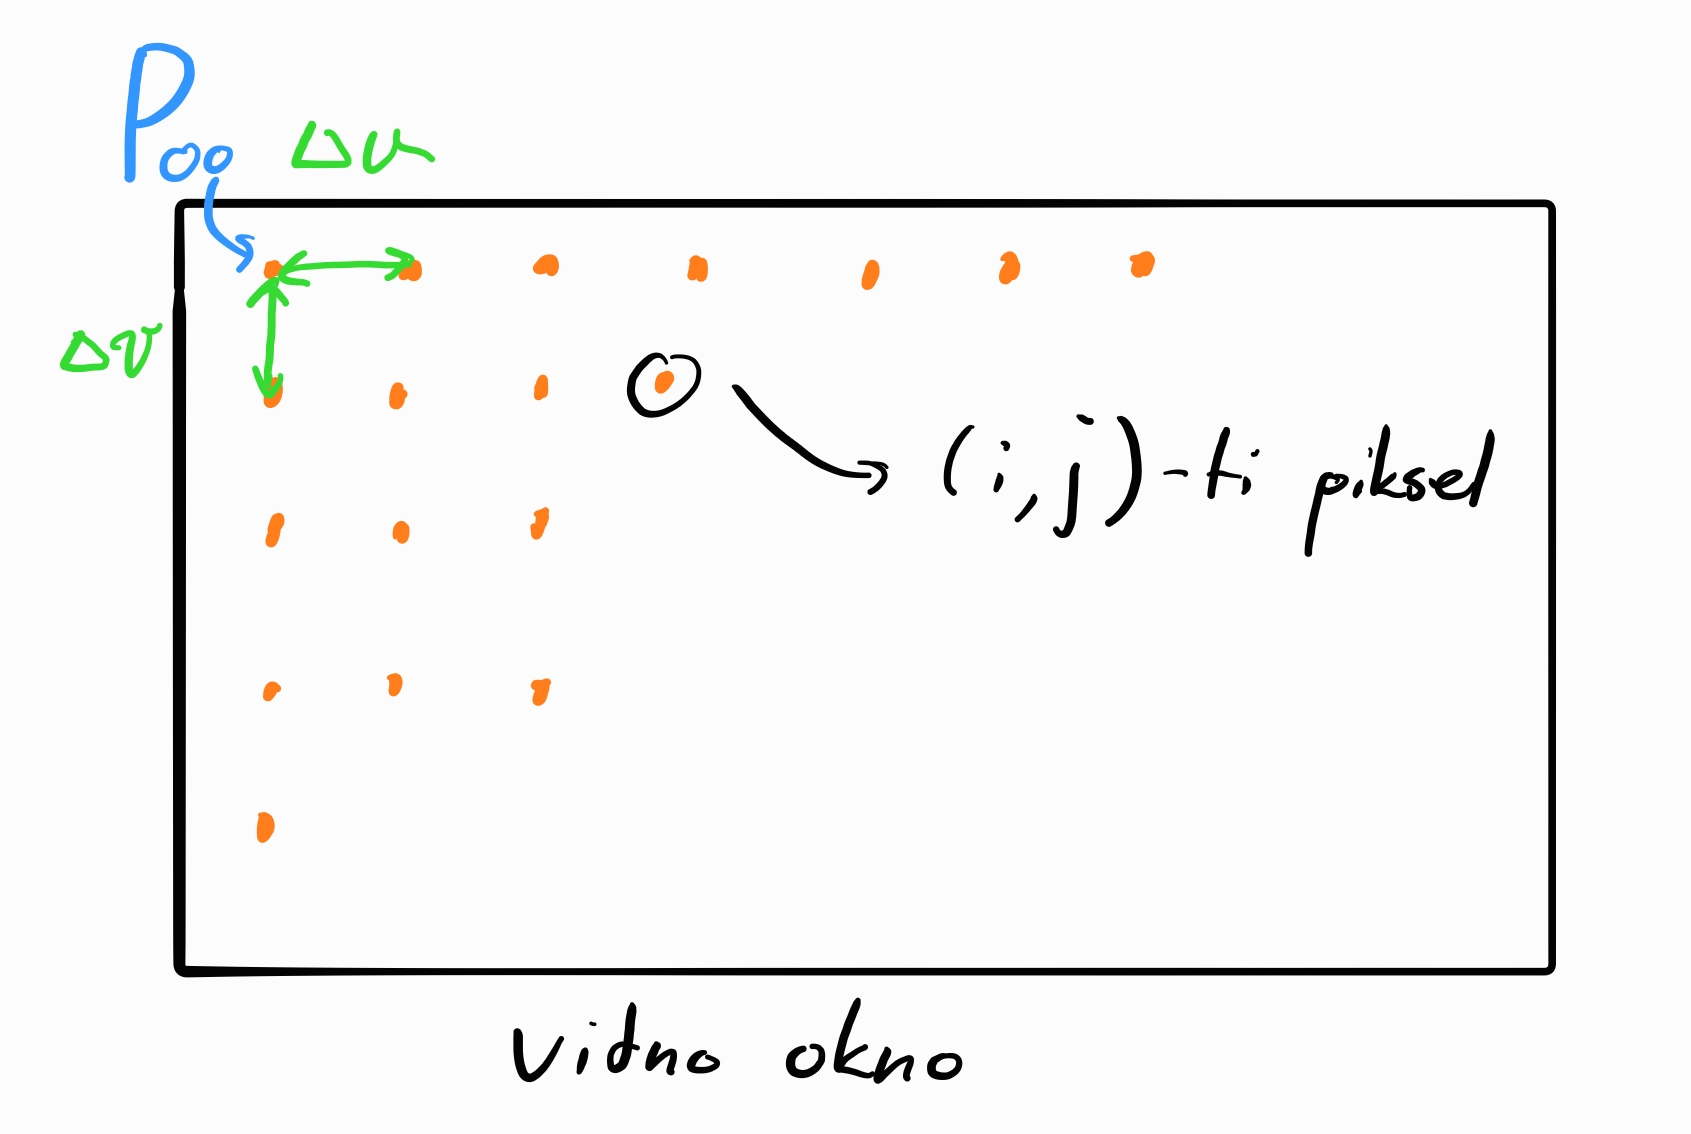 P₀₀ Δu
Δv
(i,j)-ti piksel
Vidno okno